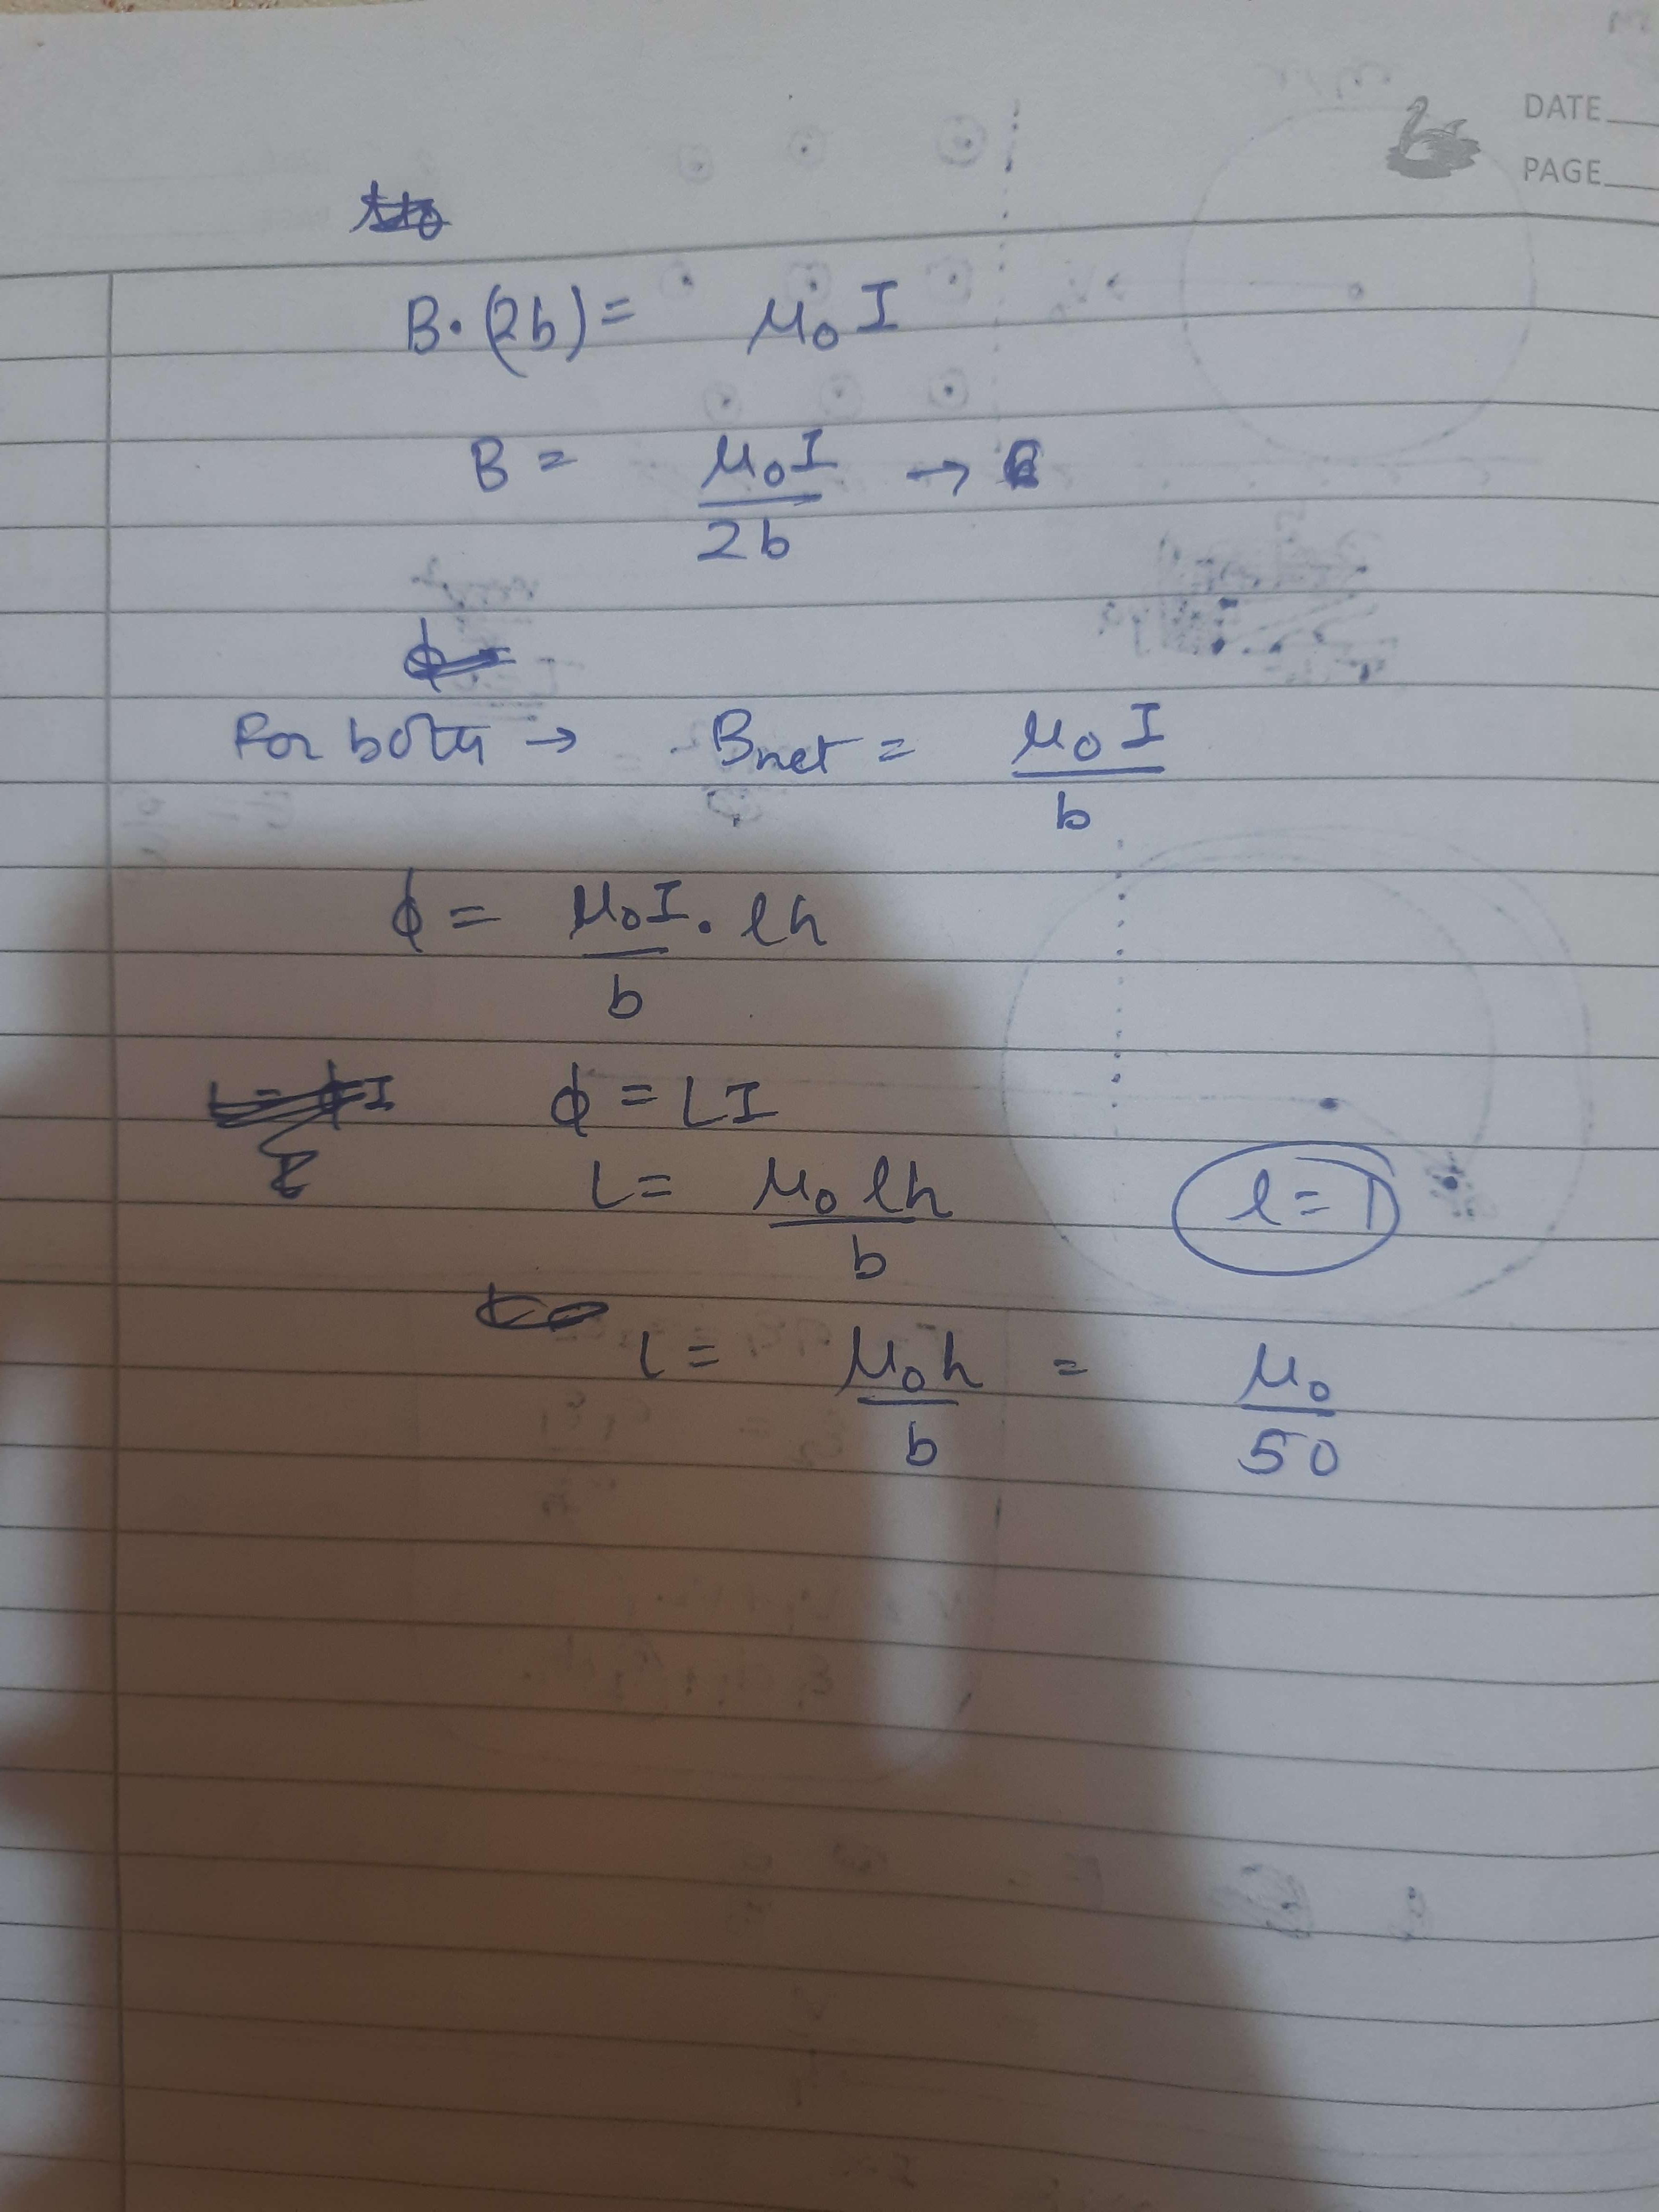 DATE
PAGE
B · (2b) = μ₀ I
B = μ₀I / 2b →
For both → Bnet = μ₀ I / b
ϕ = μ₀I / b . lh
ϕ = LI
L = μ₀ lh / b
l = 1
L = μ₀h / b = μ₀ / 50